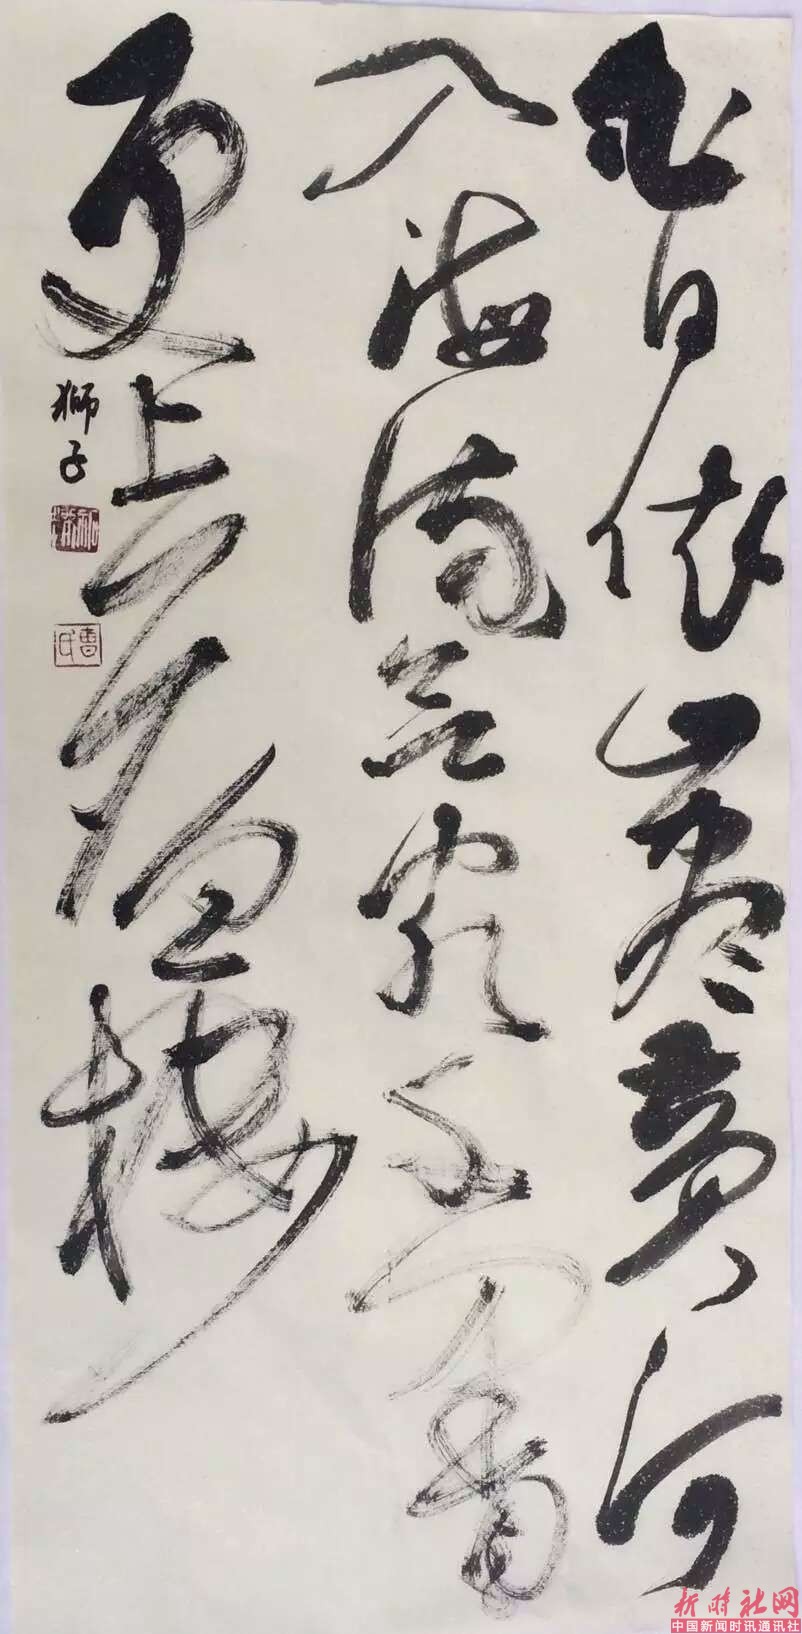 白日依山尽黄河
入海流欲窮千里目
更上一層樓
獅子
曹氏
新时社网
中国新闻时讯通讯社